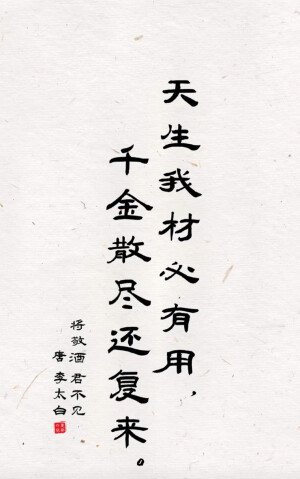 天生我材必有用，
千金散尽还复来。
将敬酒 君不见
唐 李太白